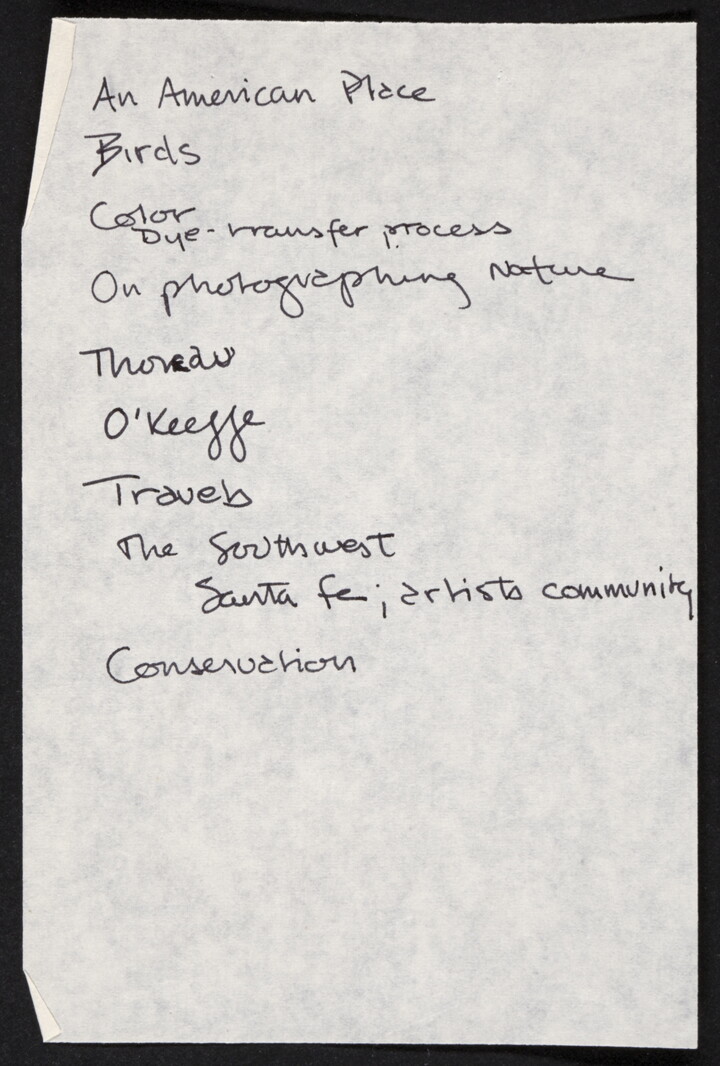 An American Place
Birds
Color
Dye-transfer process
On photographing Nature
Thoreau
O'Keeffe
Travels
The Southwest
Santa Fe; artists community
Conservation